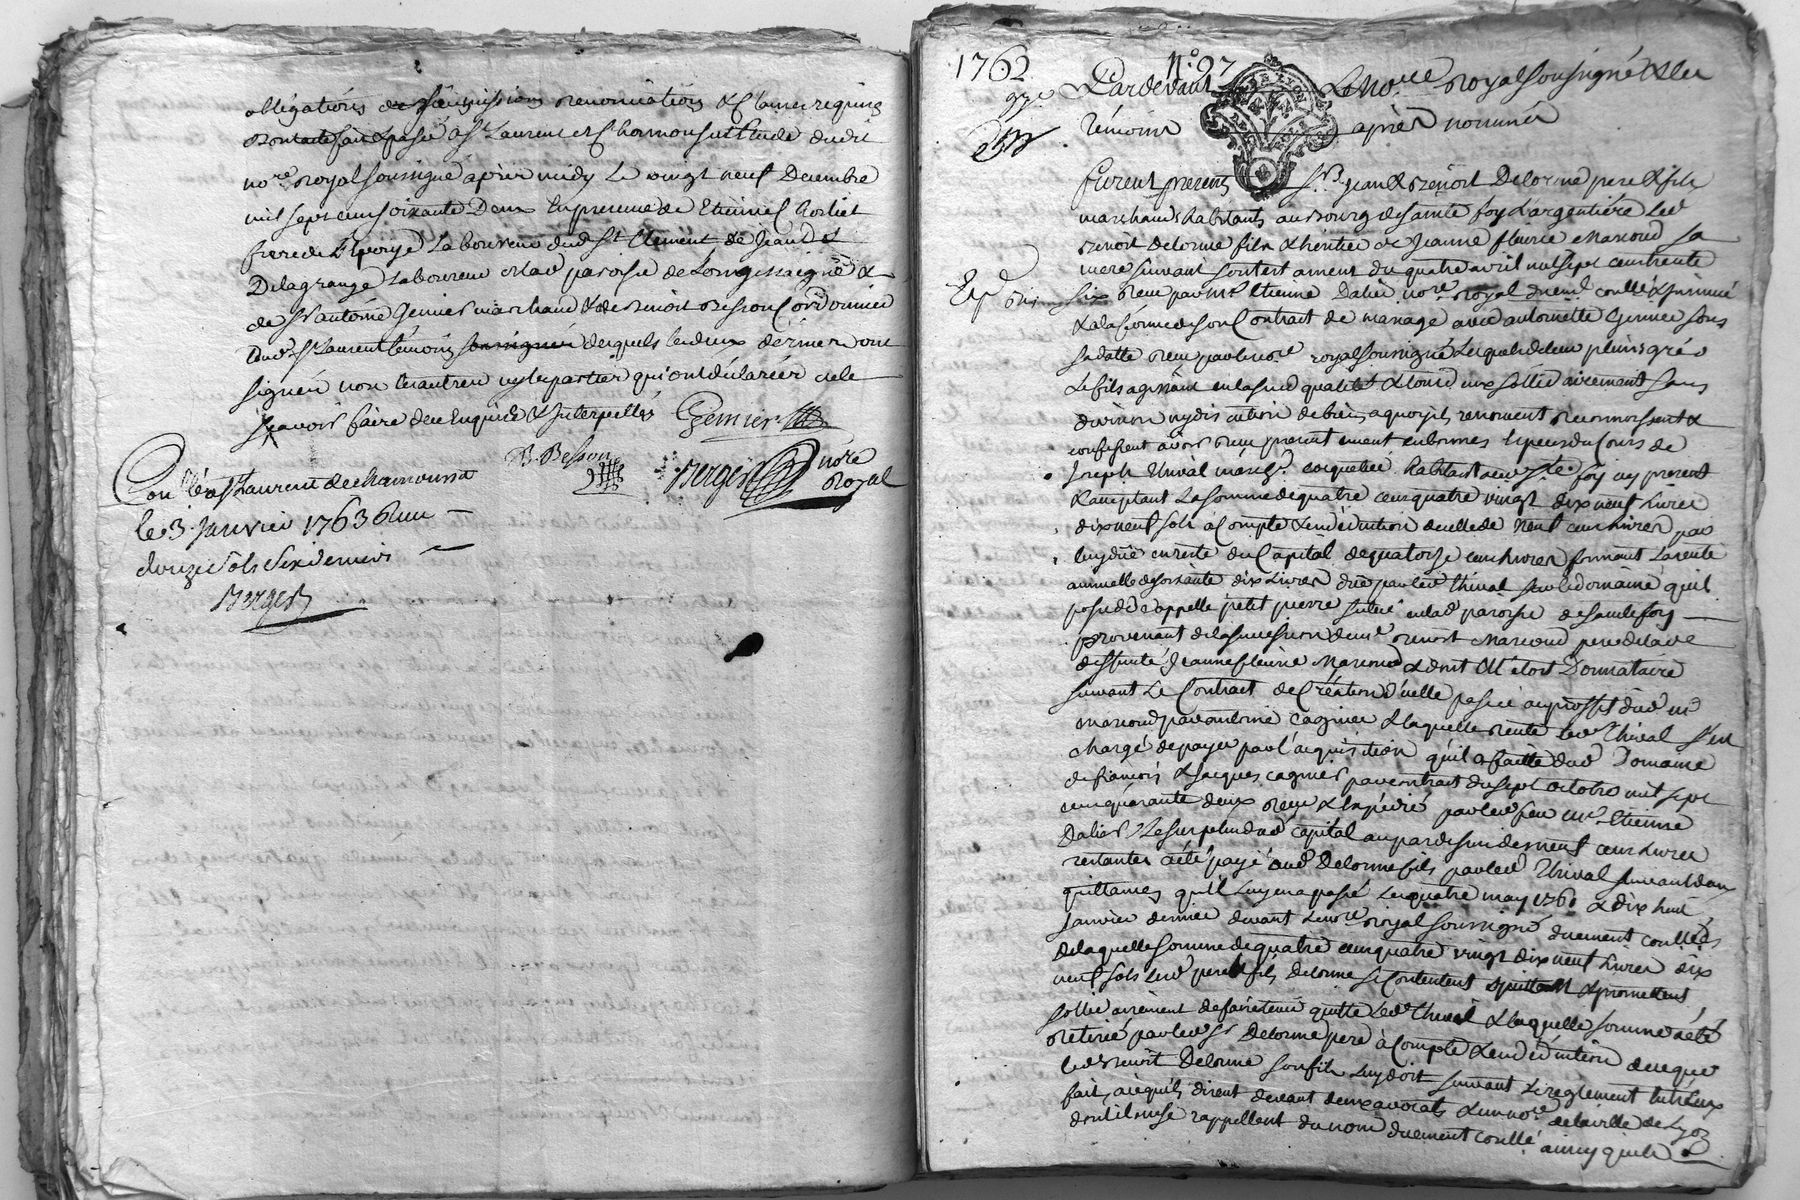 obligations submissions renonciations & clauses requises
dont acte fait & passé a St Laurent de Chamousset Etude dudit
nore royal soussigné après midy le vingt neuf Decembre
mil sept cens soixante Deux En presence de Etienne
frere de Laboureur dud St Clement de Jean
Delagrange Laboureur de lad paroisse de Longessaigne &
de Sr antoine Gemier marchand & de Benoit Besson Cordonnier
dud St Laurent témoins desquels les deux dernier ont
signés non les autres ny les parties qui ont déclarées ne le
sçavoir faire de ce Enquises & Interpellés Gemier
B. Besson
Berger nore Royal
Conllé a St Laurent de chamousset
le 3 Janvier 1763 Reçu
douze sols six deniers
Berger
1762 No. 97
97e Pardevant Le nore royal soussigné & les
témoins après nommés
furent presents Srs Jean & Benoit Delorme pere & fils
marchands habitants au Bourg de sainte foy L'argentiére Led
Benoit Delorme fils & héritier de Jeanne fleurie Marcoud sa
mere suivant son testament du quatre avril mil sept cens trente
Expd six Receu par Me Etienne Dalier nore Royal duement conllé & Insinué
& a la forme de son Contract de mariage avec antoinette Gemier sous
sa datte Receu par le nore royal soussigné Lesquels de leur pleins grés
Le fils agissant en lasusd qualité & tous deux sollidairement sans
division ny discution de biens a quoy ils renoncent reconnoissent &
confessent avoir reçu presentement en bonnes Especes du Cours de
Joseph Thival march. habitant aud Ste foy icy present
& acceptant La somme de quatre cens quatre vingt dix neuf Livres
dix neuf sols à Compte & en déduction de celle de Neuf cens Livres par
luy düe en reste du Capital de quatorze cens Livres formant La rente
annuelle de soixante dix Livres düe par led Thival sur le domaine qu'il
possede appellé petit pierre situé en lad paroisse de sainte foy
provenant de la succession de me Benoit Marcoud pere de lad
deffunte Jeanne fleurie Marcoud & dont Elle étoit Donnataire
suivant Le Contract de Création d'icelle passé au proffit dud me
marcoud par antoine Cagnier & laquelle rente led Thival s'est
chargé de payer par l'acquisition qu'il a faitte dud Domaine
de françois & Jacques Cagnier par contract du sept octobre mil sept
cens quarante deux Receu & Expédié par led feu Me Etienne
Dalier Le surplus dud capital au pardessus des neuf cens Livres
restantes a été payé aud Delorme fils par led Thival suivant deux
quittances qu'il Luy en a passé Les quatre may 1760 & dix huit
Janvier dernier devant Le nore royal soussigné duement conllées
De laquelle somme de quatre cens quatre vingt dix neuf Livres dix
neuf sols lesd pere & fils Delorme se Contentent quittent & promettent
sollidairement de faire tenir quitte Led Thival & laquelle somme a été
Retirée par led Sr Delorme pere à Compte & en déduction de ce que
led Benoit Delorme son fils luy doit suivant Le reglement entr'Eux
fait, a ce qu'ils disent devant deux avocats & un nore de la ville de Lyon
dont il ne se rappellent du nom duement conllé ainsy qu'ils